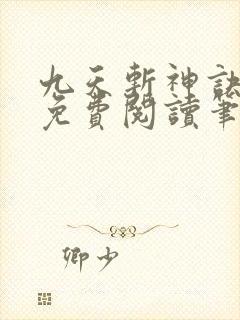 九天斬神訣
免費閱讀筆
卿少